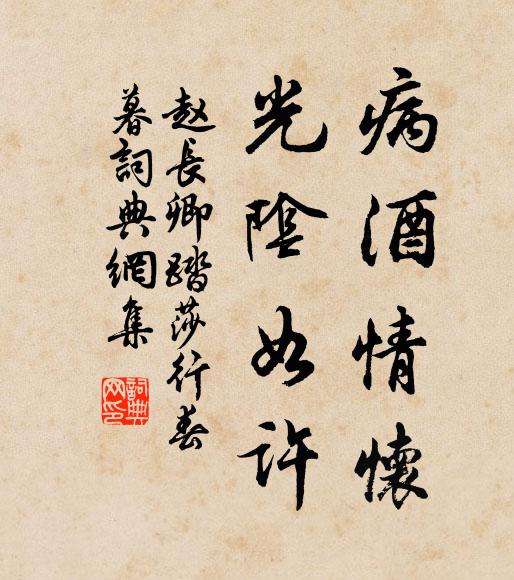 病酒情懷
光陰如許
赵長卿踏莎行春
暮詞典網集
詞典
网印